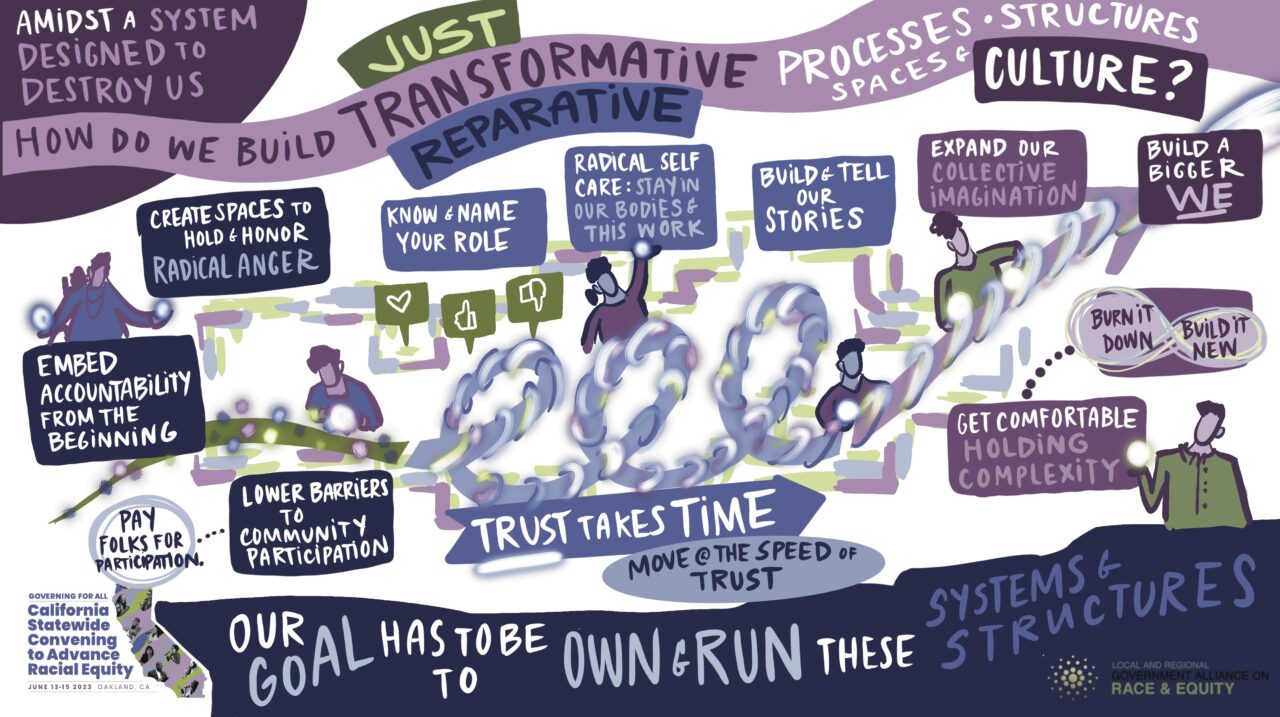 AMIDST A SYSTEM
DESIGNED TO
DESTROY US
HOW DO WE BUILD
JUST
TRANSFORMATIVE
REPARATIVE
PROCESSES • STRUCTURES
SPACES &
CULTURE?
CREATE SPACES TO
HOLD & HONOR
RADICAL ANGER
KNOW & NAME
YOUR ROLE
RADICAL SELF
CARE: STAY IN
OUR BODIES &
THIS WORK
BUILD & TELL
OUR
STORIES
EXPAND OUR
COLLECTIVE
IMAGINATION
BUILD A
BIGGER
WE
EMBED
ACCOUNTABILITY
FROM THE
BEGINNING
BURN IT
DOWN
BUILD IT
NEW
GET COMFORTABLE
HOLDING
COMPLEXITY
LOWER BARRIERS
TO
COMMUNITY
PARTICIPATION
PAY
FOLKS FOR
PARTICIPATION.
TRUST TAKES TIME
MOVE @ THE SPEED OF
TRUST
OUR GOAL HAS TO BE
TO OWN & RUN THESE
SYSTEMS &
STRUCTURES
GOVERNING FOR ALL
California
Statewide
Convening
to Advance
Racial Equity
JUNE 13-15 2023 OAKLAND, CA
LOCAL AND REGIONAL
GOVERNMENT ALLIANCE ON
RACE & EQUITY